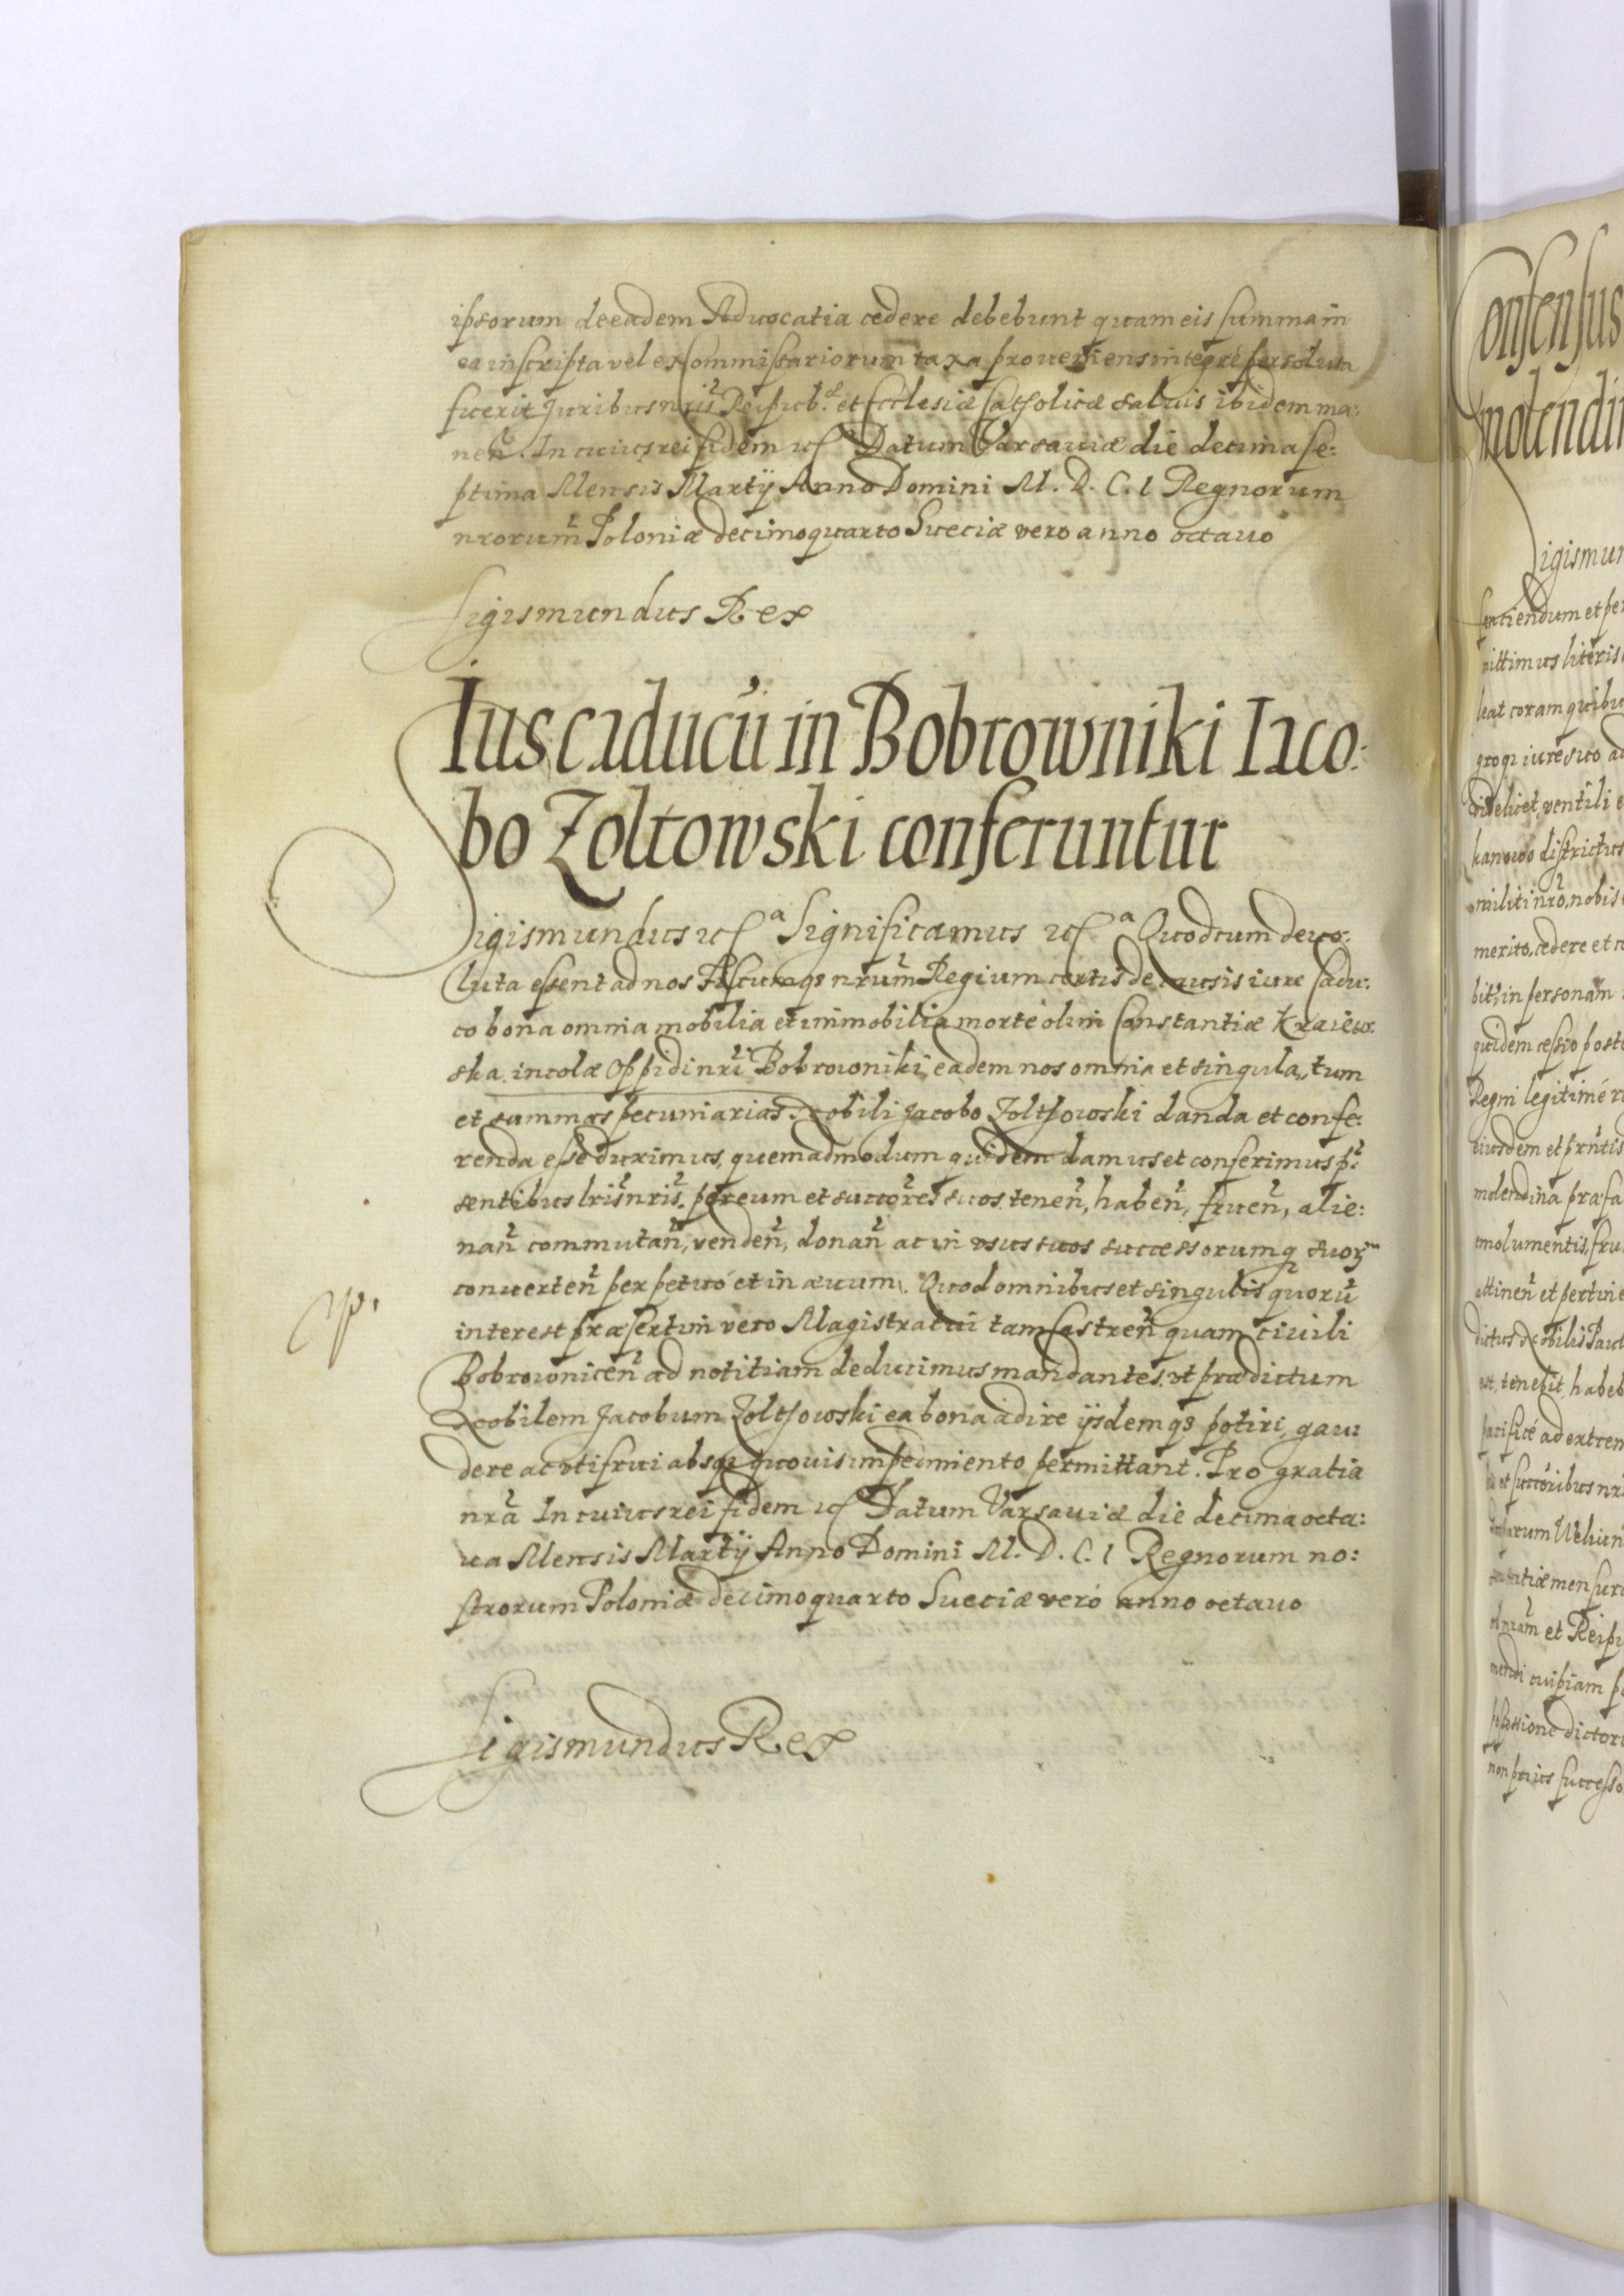 ipsorum de eadem Advocatia cedere debebunt quam eis summa in
ea inscripta vel ex Commissariorum taxa proveniens integrè persoluta
fuerit Juribus nris Reipub. et Ecclesiæ Catholicæ salvis ibidem ma:
nen. In cuius rei fidem etc Datum Varsaviæ die decima se:
ptima Mensis Martij Anno Domini M. D. C. I Regnorum
nrorum Poloniæ decimoquarto Sueciæ vero anno octauo
Sigismundus Rex
Ius caducũ in Bobrowniki Iaco:
bo Zoltowski conferuntur
Sigismundus etcª Significamus etcª Quod cum deuo:
luta essent ad nos Fiscumqз nrum Regium certis de causis iure Cadu:
co bona omnia mobilia et immobilia morte olim Constantiæ Kraiew:
ska incolæ Oppidi nri Bobrowniki, eadem nos omnia et singula, tum
et summas pecuniarias Nobili Jacobo Zolthowski danda et confe:
renda esse duximus, quemadmodum quidem damus et conferimus p:
sentibus lris nris. per eum et succores suos tenen, haben, fruen, alie:
nan commutan, venden, donan ac in usus suos successorumq suorᷣ
conuerten perpetuò et in æuum. Quod omnibus et singulis quorũ
interest præsertim vero Magistratui tam Castren quam ciuili
Bobrownicen ad notitiam deducimus mandantes. vt prædictum
Nobilem Jacobum Zolthowski ea bona adire ijsdemqз potiri, gau:
dere ac vti frui absqз quouis impedimento permittant. Pro gratia
nra In cuius rei fidem etc Datum Varsauiæ die decima octa:
ua Mensis Martij Anno Domini M. D. C. I Regnorum no:
strorum Poloniæ decimoquarto Sueciæ verò anno octauo
Sigismundus Rex
Consensus
molendi
Sigismun
faciendum et per
mittimus literis
leat coram quibu
groqз iure suo ad
videlicet, ventili e
kanowo districtus
militi nro, nobis
merito, cedere et
bit, in personam
quidem cessio post
Regni legitimè r
eiusdem et prntis
molendina præfa
emolumentis, fru
attinen et pertine
dictus Nobilis Paul
est, tenebit, habeb
pacificè ad extrem
et succoribus nr
rum Wielun
mensur
nram et Reipu
mendi cuipiam p
possessione dictor
non prius successo